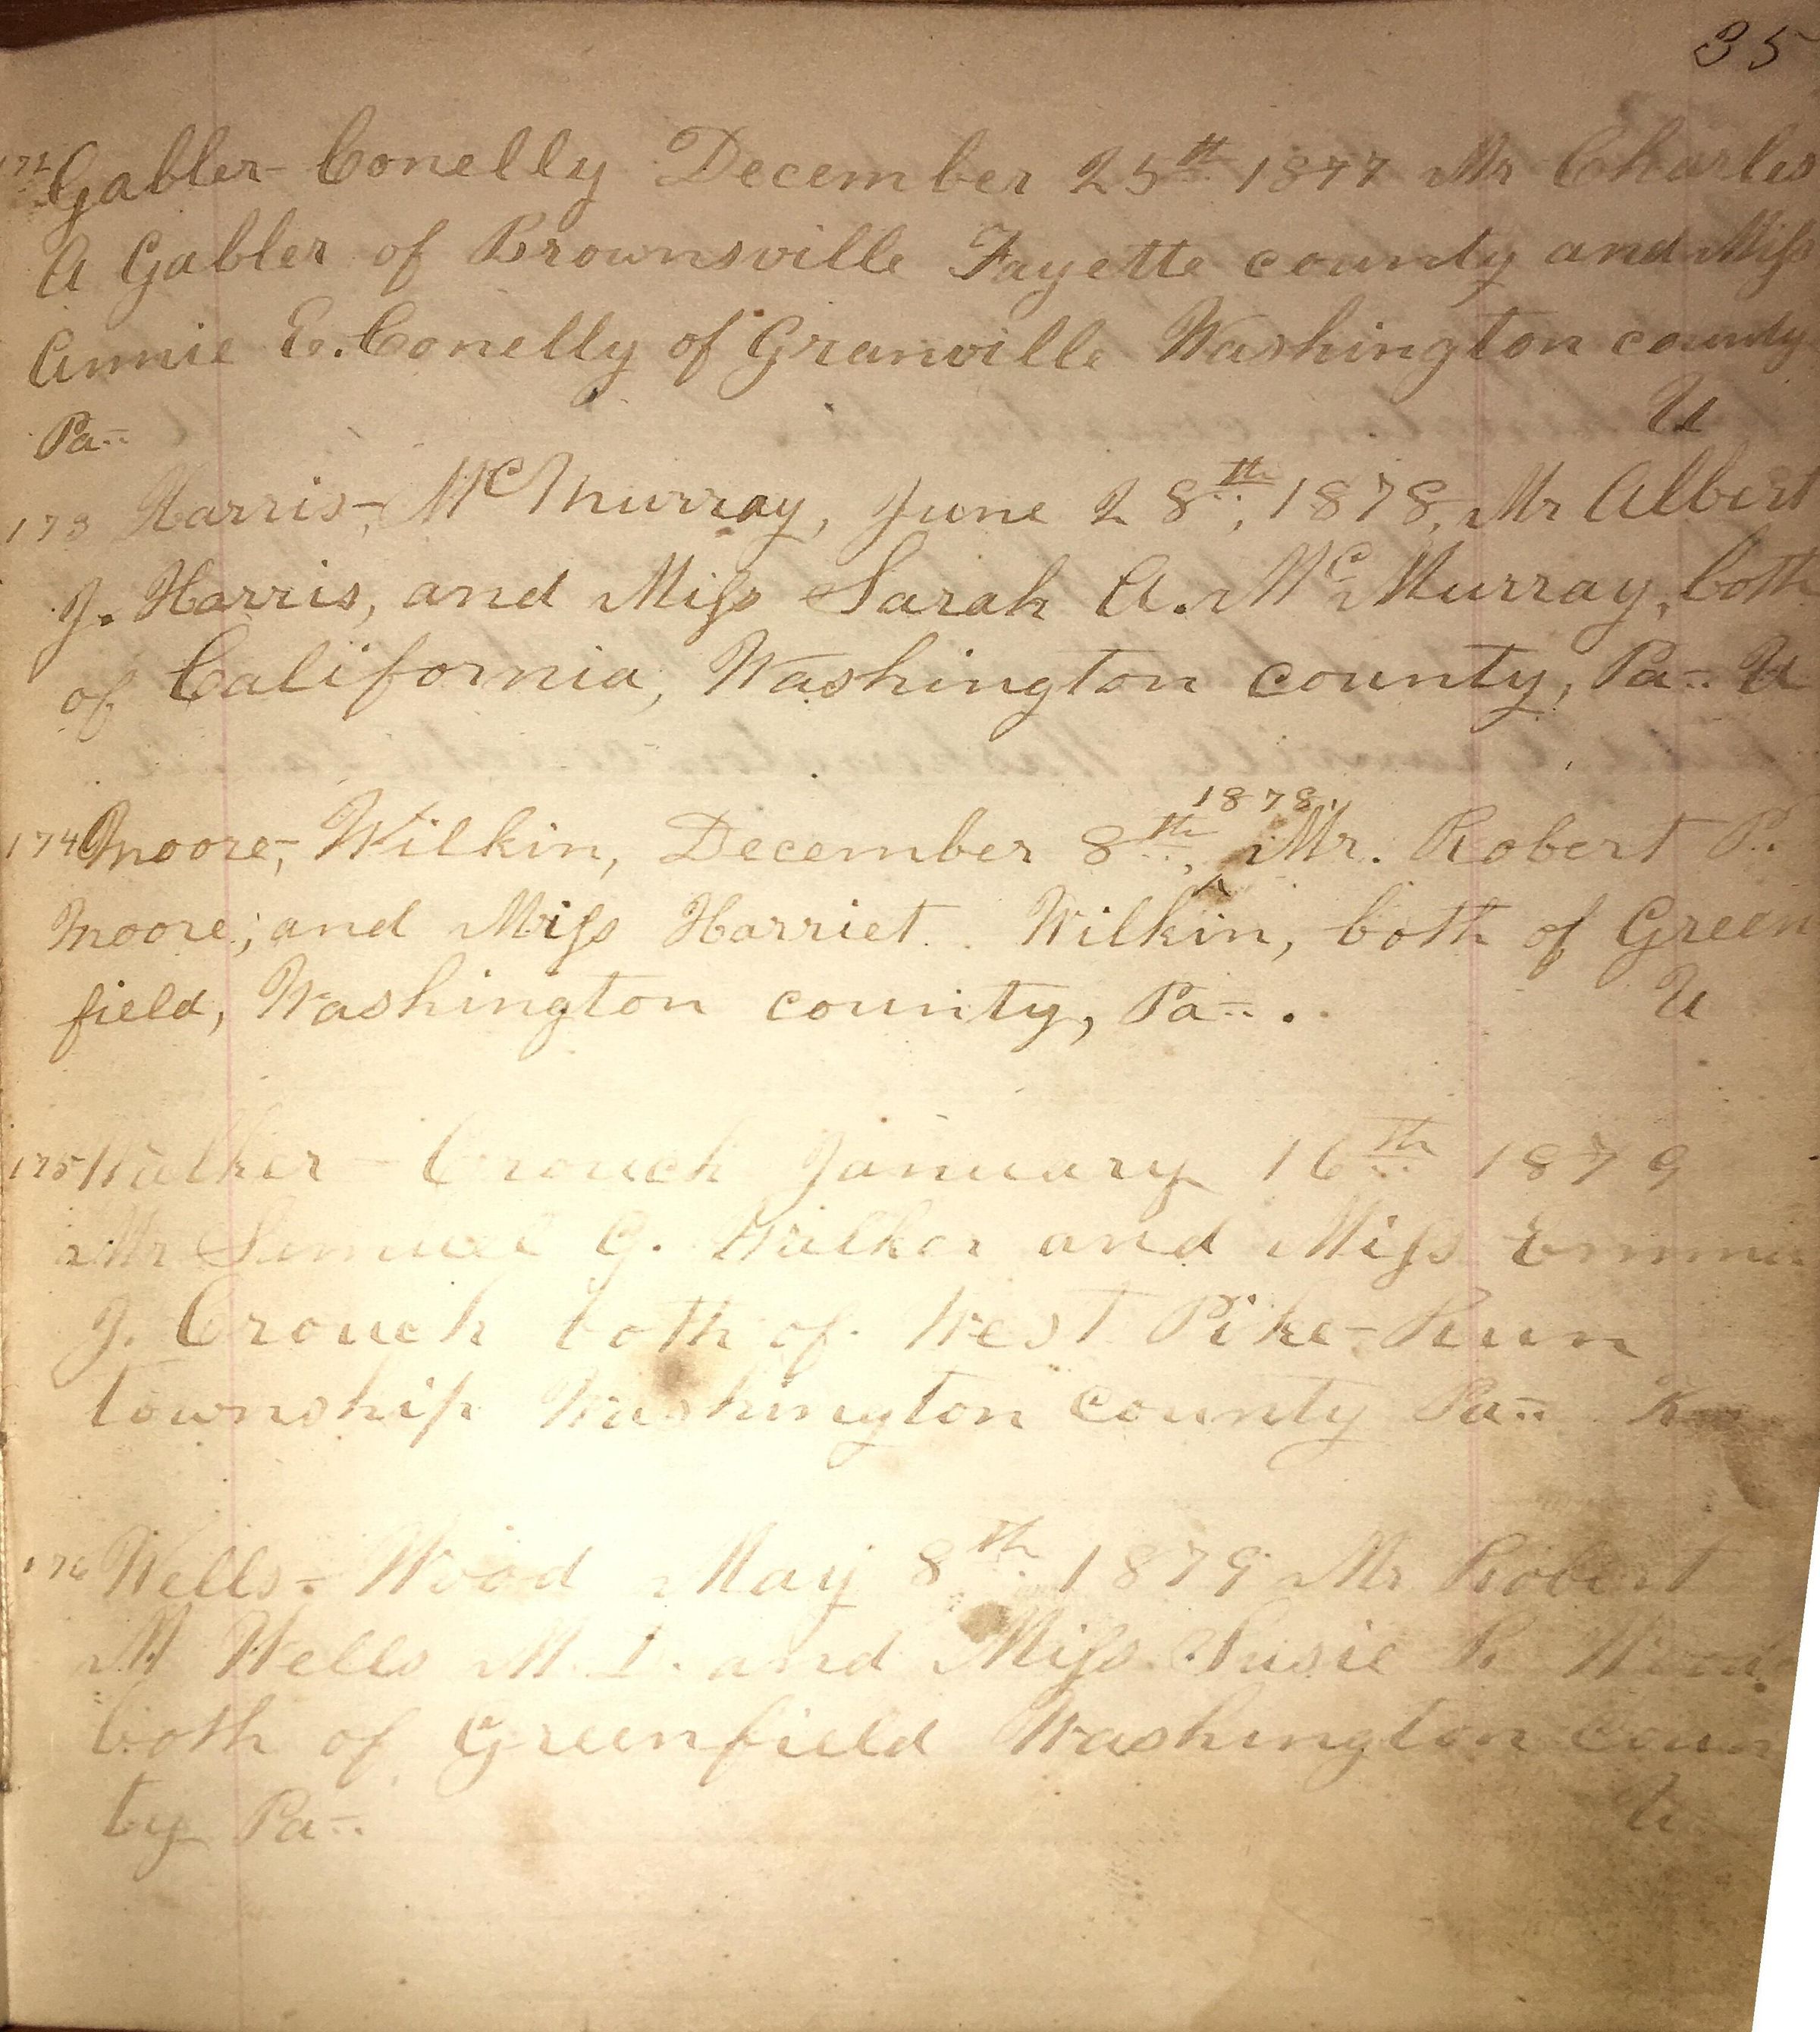 35
172 Gabler-Conelly December 25th 1877 Mr Charles
A Gabler of Brownsville Fayette county and Miss
Annie E. Conelly of Granville Washington county
Pa= U
173 Harris-, McMurray, June 28th, 1878, Mr Albert
J. Harris, and Miss Sarah A. McMurray, both
of California, Washington county, Pa= U
1878,
174 Moore-, Wilkin, December 8th, ^ Mr. Robert P.
Moore, and Miss Harriet. Wilkin, both of Green
field, Washington county, Pa=. U
175 Walker-Crouch January 16th 1879
Mr Samuel G. Walker and Miss Emma
J. Crouch both of West Pike-Run
township Washington county Pa=
176 Wells-Wood May 8th 1879 Mr Robert
M Wells M.D. and Miss Susie R Wood
both of Greenfield Washington coun
ty Pa=